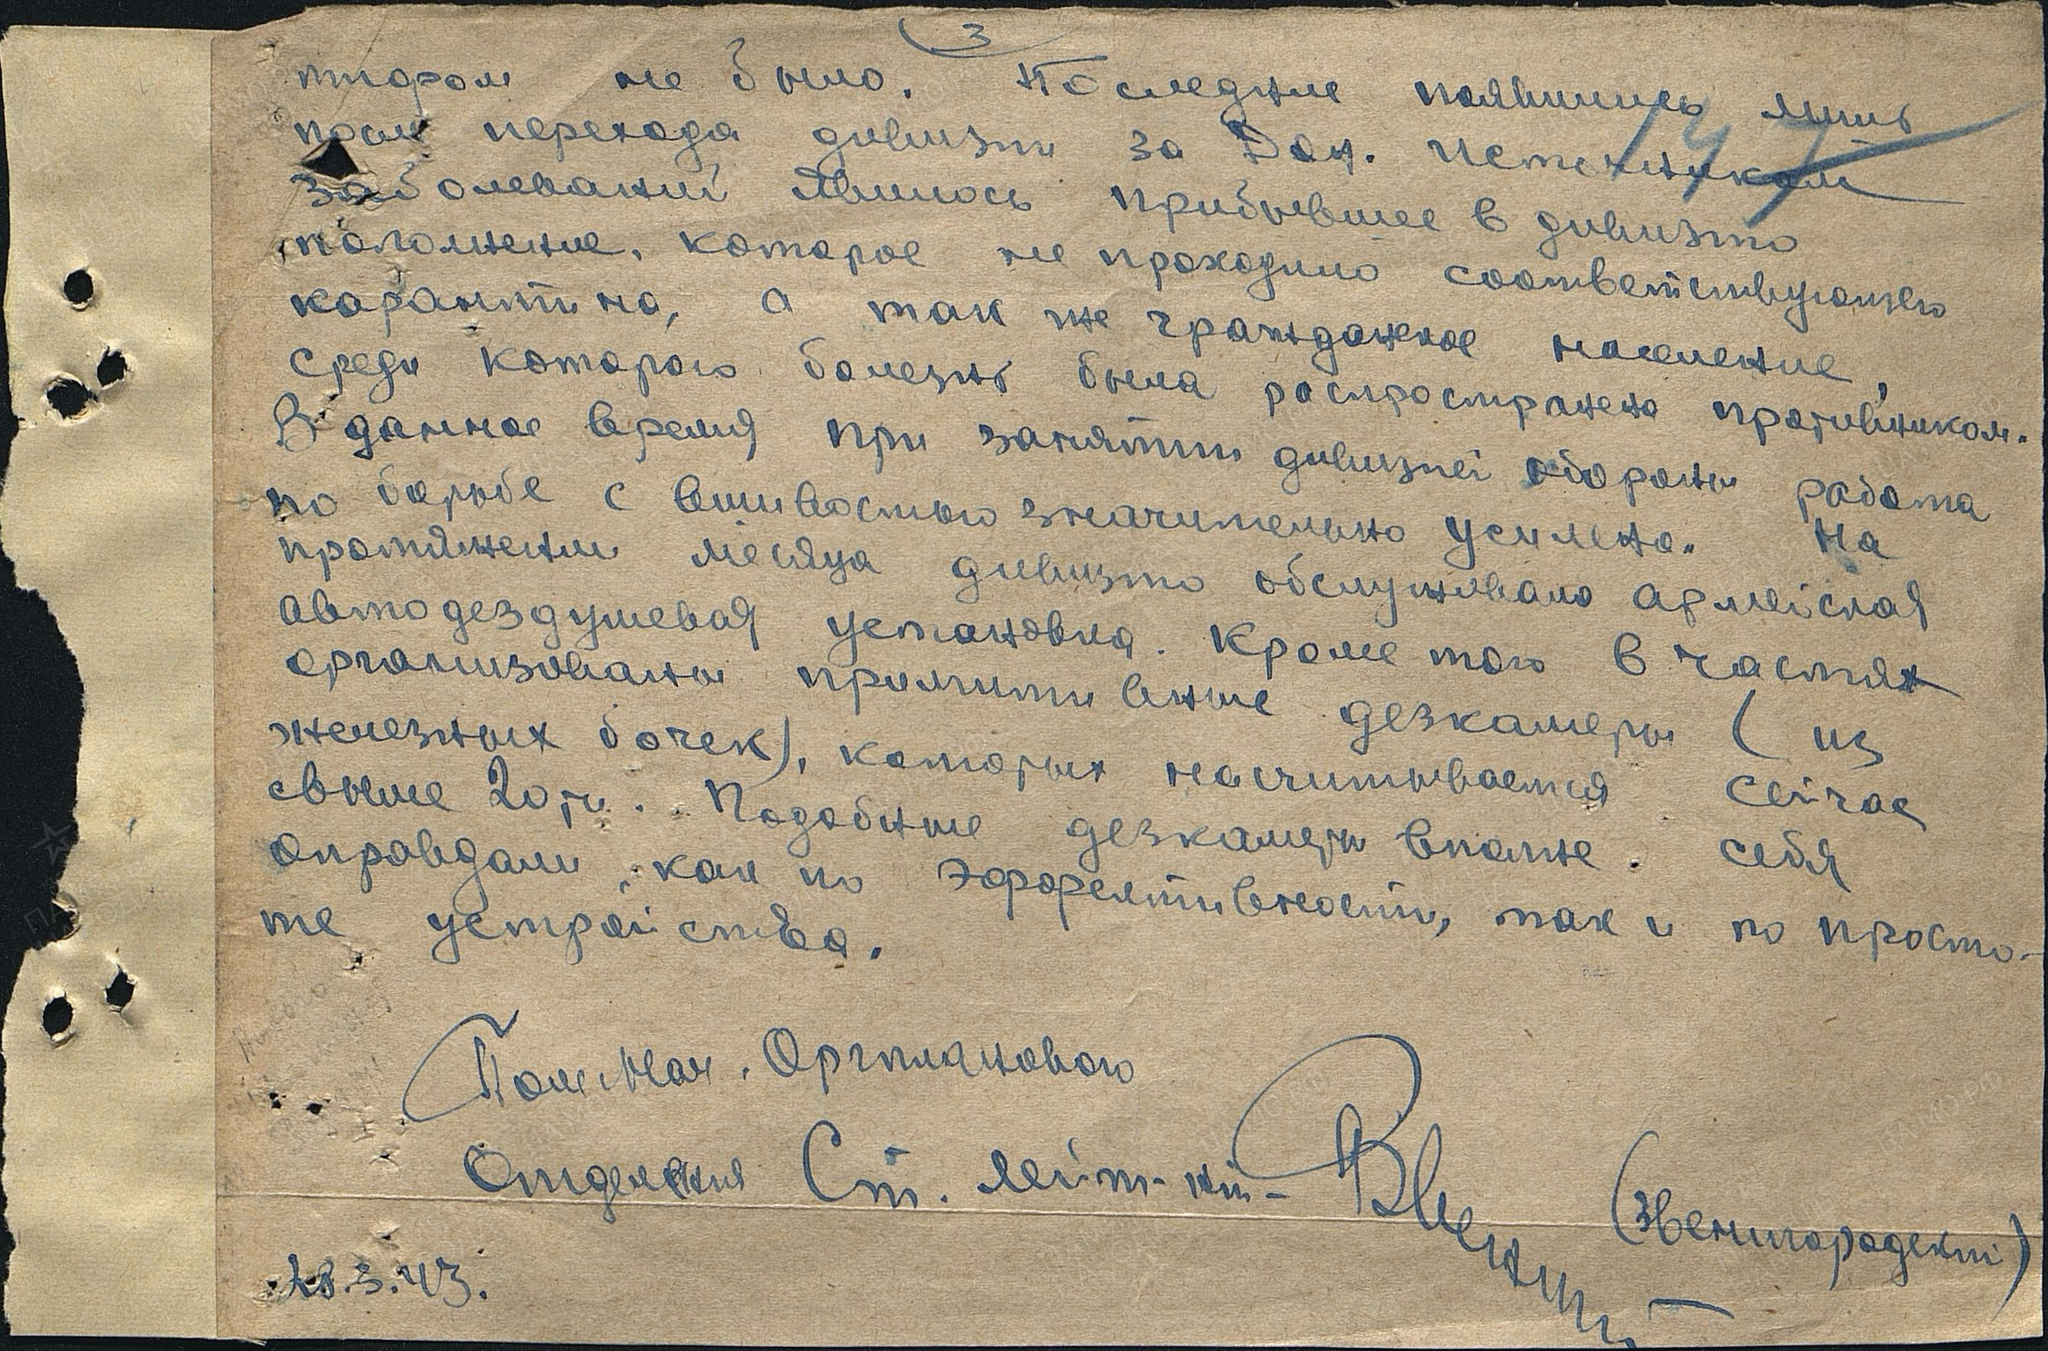 3
тифом не было. Последние появились лишь
147
после перехода дивизии за Дон. Источником
заболеваний явилось прибывшее в дивизию
пополнение, которое не проходило соответствующего
карантина, а так же гражданское население,
среди которого болезнь была распространена противником.
В данное время при занятии дивизией обороны работа
по борьбе с вшивостью значительно усилена. На
протяжении месяца дивизию обслуживала армейская
автодездушевая установка. Кроме того в частях
организованы примитивные дезкамеры (из
железных бочек), которых насчитывается сейчас
свыше 20ти. Подобные дезкамеры вполне себя
оправдали, как по эффективности, так и по просто-
те устройства.
Пом. Нач. Оргпланового
Отделения Ст. лейт-нт - (Звенигородский)
28.3.43.